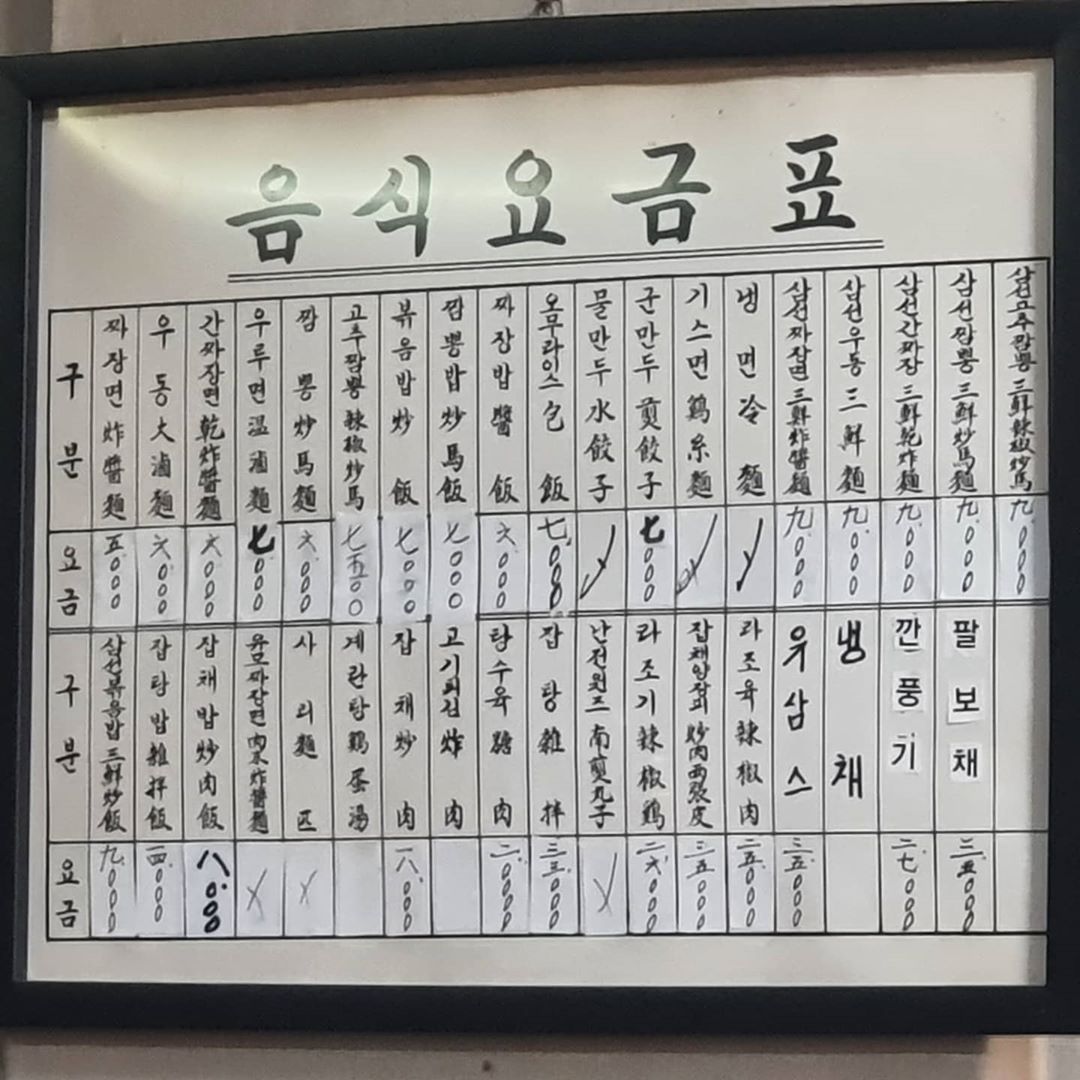 음식요금표
구분
짜장면 炸醬麵
우동 大滷麵
간짜장면 乾炸醬麵
우루면 温滷麵
짬뽕 炒馬麵
고추짬뽕 辣椒炒馬
볶음밥 炒飯
짬뽕밥 炒馬飯
짜장밥 醬飯
오무라이스 包飯
물만두 水餃子
군만두 煎餃子
기스면 鷄糸麵
냉면 冷麵
삼선짜장면 三鮮炸醬麵
삼선우동 三鮮麵
삼선간짜장 三鮮乾炸麵
삼선짬뽕 三鮮炒馬麵
삼선고추짬뽕 三鮮辣椒炒馬
요금
五.000
六.000
六.000
七.000
六.000
七五00
七.000
七000
六.000
七.000
七000
九.000
九.000
九.000
九.000
九.000
구분
삼선볶음밥 三鮮炒飯
잡탕밥 雜拌飯
잡채밥 炒肉飯
유모짜장면 炸醬麵
사리 麵
계란탕 鷄蛋湯
잡채 炒肉
고기튀김 炸肉
탕수육 糖肉
잡탕 雜拌
난전완즈 南煎丸子
라조기 辣椒鷄
잡채양장피 炒肉両張皮
라조육 辣椒肉
우삼스
냉채
깐풍기
팔보채
요금
九.000
一四.000
八.000
一八.000
二.0000
三三.000
二六.000
三五.000
二五.000
三五.000
二七.000
三五.000